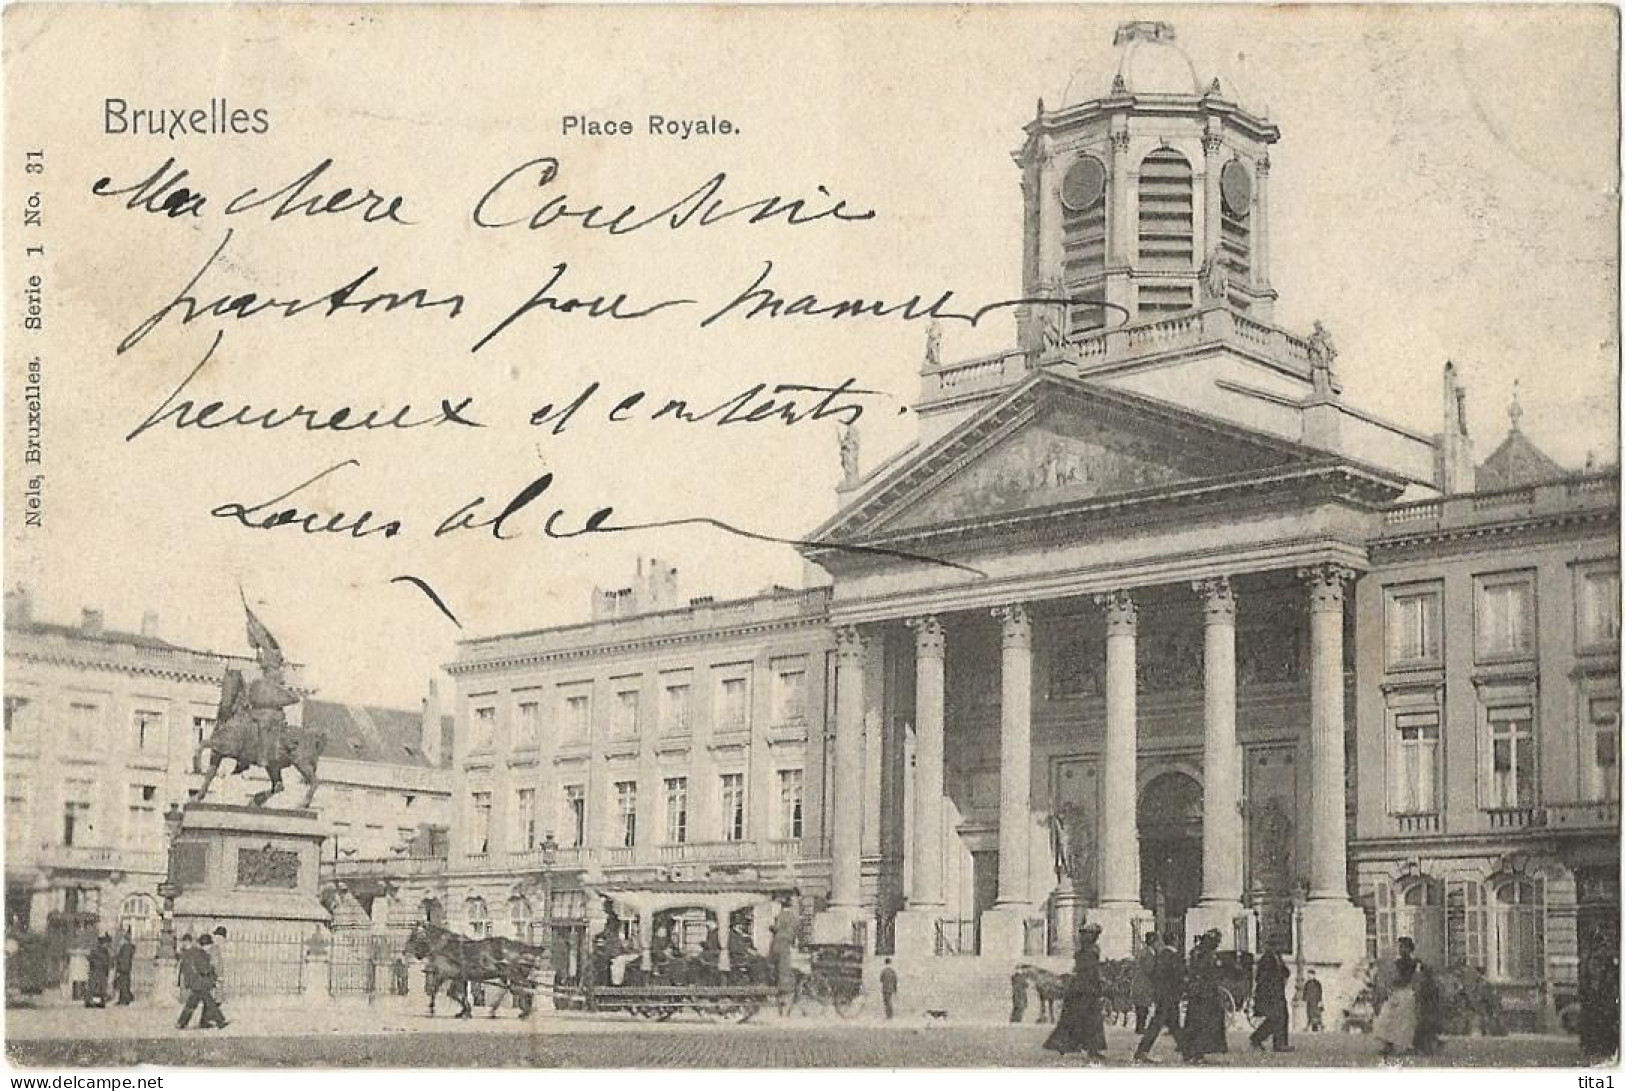 Bruxelles
Place Royale.
Ma chere Cousine
partons pour Namur
heureux et contents.
Louis Alice
Nels, Bruxelles. Serie 1 No. 31
HOTEL
tita1